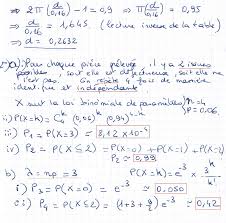 ⇒ 2π(d/0,16) - 1 = 0,9 ⇒ π(d/0,16) = 0,95
⇒ d/0,16 = 1,645 (lecture inverse de la table)
⇒ d = 0,2632
Pour chaque pièce prélevée, il y a 2 issues
possibles, soit elle est défectueuse, soit elle ne
l'est pas. On répète 4 fois de manière
identique et indépendante
X suit la loi binomiale de paramètres n=4 p=0.06.
ii) P(X=k) = C₄ᵏ (0,06)ᵏ (0,94)⁴⁻ᵏ
iii) P₁ = P(X=3) = 8,12 × 10⁻⁴
iv) P₂ = P(X≤2) = P(X=0) + P(X=1) + P(X=2)
P₂ ≃ 0,99
b) λ = np = 3 P(X=k) = e⁻³ × 3ᵏ/k!
i) P₃ = P(X=0) = e⁻³ ≃ 0.050
ii) P₄ = P(X≤2) = (1+3+9/2) e⁻³ ≃ 0,42